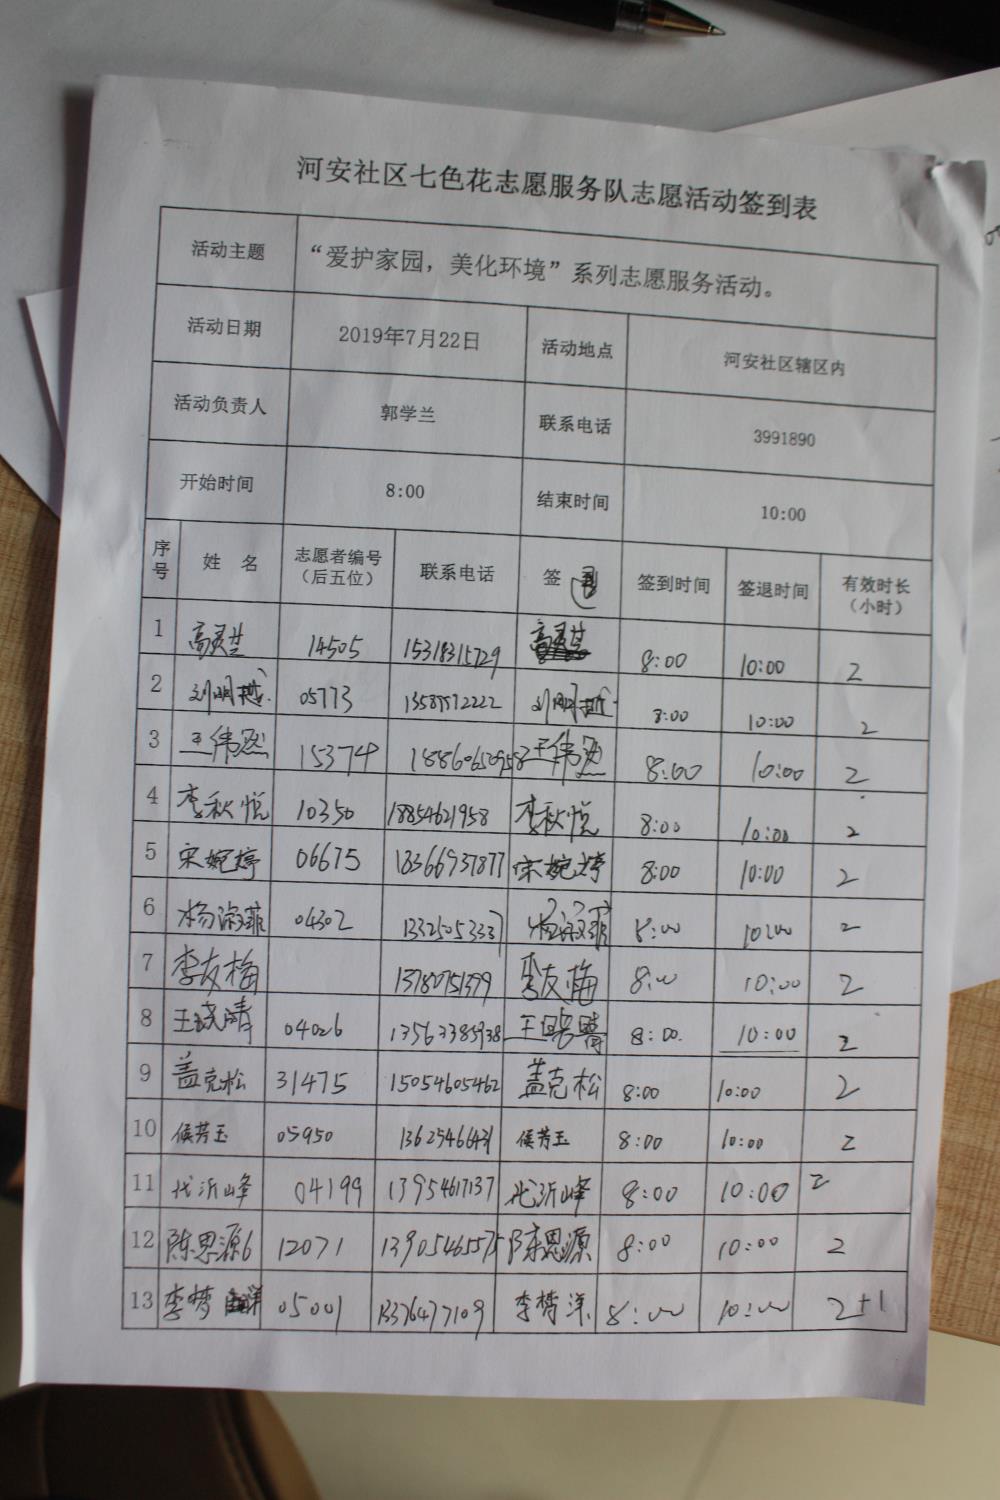 河安社区七色花志愿服务队志愿活动签到表
活动主题 “爱护家园，美化环境”系列志愿服务活动。
活动日期 2019年7月22日 活动地点 河安社区辖区内
活动负责人 郭学兰 联系电话 3991890
开始时间 8:00 结束时间 10:00
序号 姓 名 志愿者编号（后五位） 联系电话 签 到时间 签退时间 有效时长（小时）
1 14505 15318315729 8:00 10:00 2
2 刘明越 05773 刘明越 8:00 10:00 2
3 王伟 15374 18860650958 王伟 8:00 10:00 2
4 李秋悦 10350 18854621958 李秋悦 8:00 10:00 2
5 宋婉婷 06675 18366937877 宋婉婷 8:00 10:00 2
6 杨淑菲 04302 13325053337 杨淑菲 8:00 10:00 2
7 李友梅 13780751379 李友梅 8:00 10:00 2
8 王晓晴 04026 13563385938 王晓晴 8:00 10:00 2
9 盖克松 31475 15054605462 盖克松 8:00 10:00 2
10 侯芳玉 05950 13625466431 侯芳玉 8:00 10:00 2
11 代沂峰 04199 13954617137 代沂峰 8:00 10:00 2
12 陈思源6 12071 13905465575 陈思源 8:00 10:00 2
13 李梦洋 05001 13376477109 李梦洋 8:00 10:00 2+1